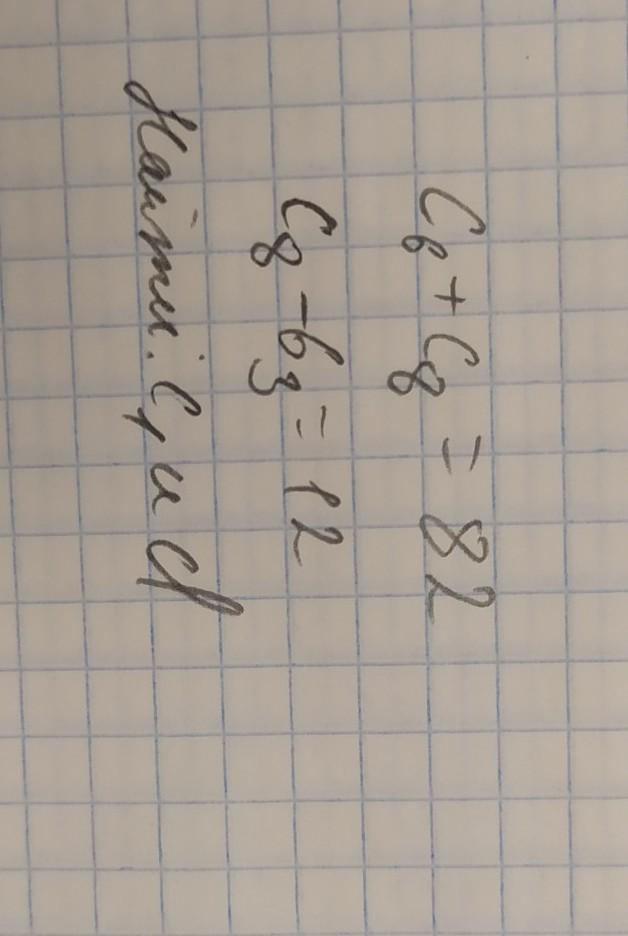 C₆ + C₈ = 82
C₈ - b₃ = 12
Найти: C₁ и d